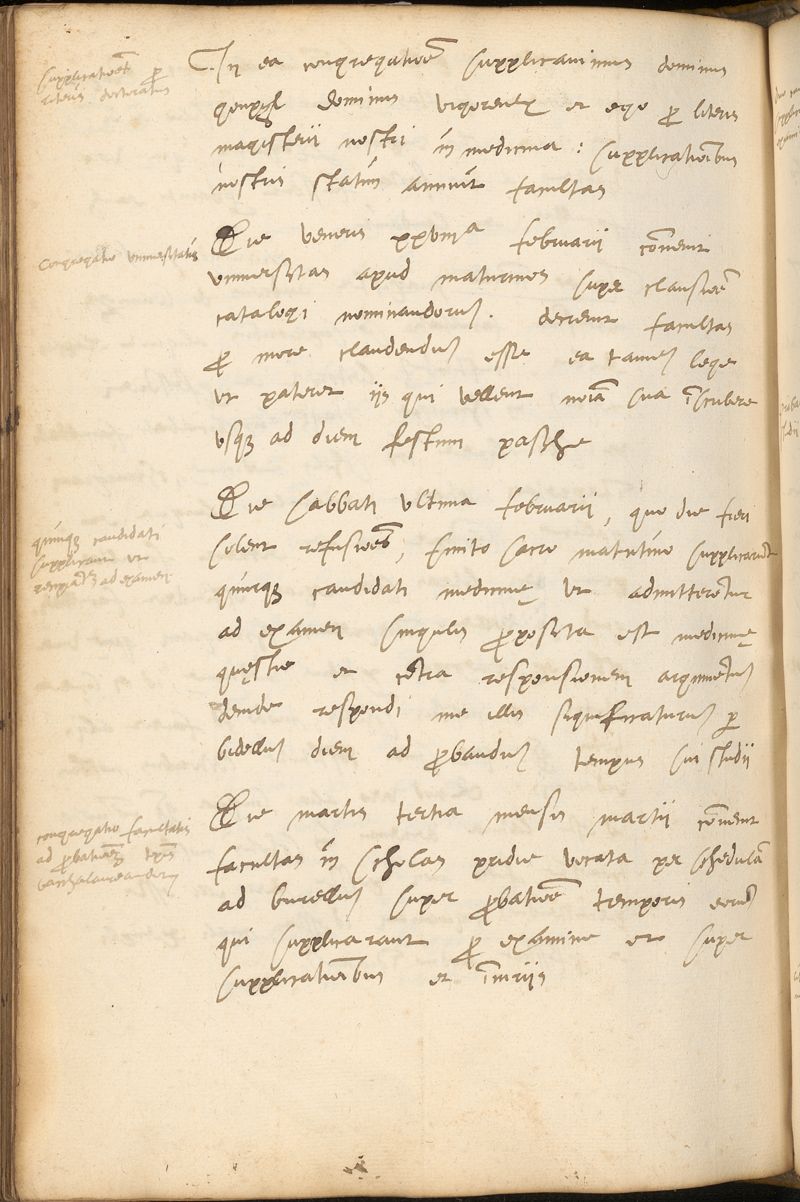 supplicatioēs pro
literis doctoratus
In ea congregatiōe supplicauimus dominus
goupyl dominus vigoreux et ego pro literis
magisterii nostri in medicina : supplicatiōibus
nostris statim annuit facultas
Congregatio vniuersitatis
Die veneris xxvii^a februarii cōuenit
vniuersitas apud maturinos super clausiōe
catalogi nominandorum. decreuit facultas
pro more claudendum esse ea tamen lege
vt pateret iis qui vellent noīa sua īscribere
vsque ad diem festum pasche
quinque candidati
supplicant vt
ad examen
Die sabbati vltima februarii, quo die fieri
solent refusiōes, finito sacro matutino supplicarunt
quinque candidati medicinę vt admitterētur
ad examen singulis proposita est medicinę
quęstio et cōtra responsionem argumētum
deinde respondi me illis significaturum per
bidellum diem ad probandum tempus sui studii
congregatio facultatis
ad probatiōem tp̄is
baccalaureandorum
Die martis tertia mensis martii cōuenit
facultas in scholas pridie vocata per schedulam
ad burellum super probatiōe temporis eorum
qui supplicarant pro examine et super
supplicatiōibus et iniuriis